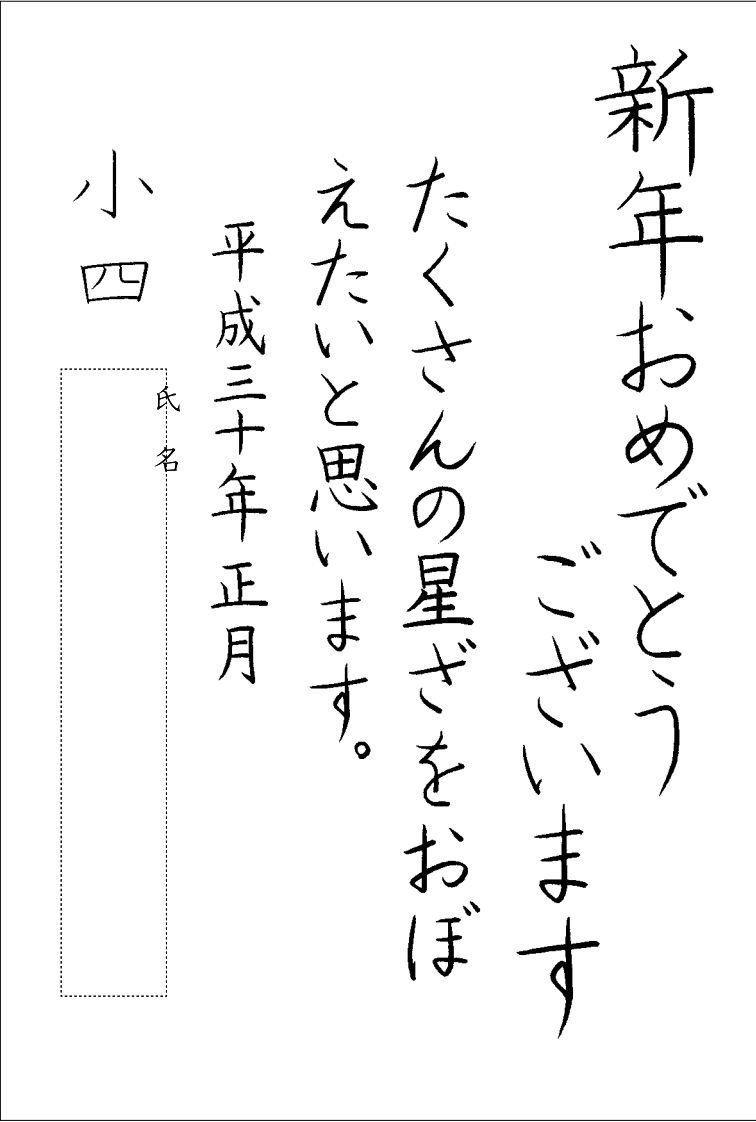 新年おめでとう
ございます
たくさんの星ざをおぼ
えたいと思います。
平成三十年 正月
小四
氏名